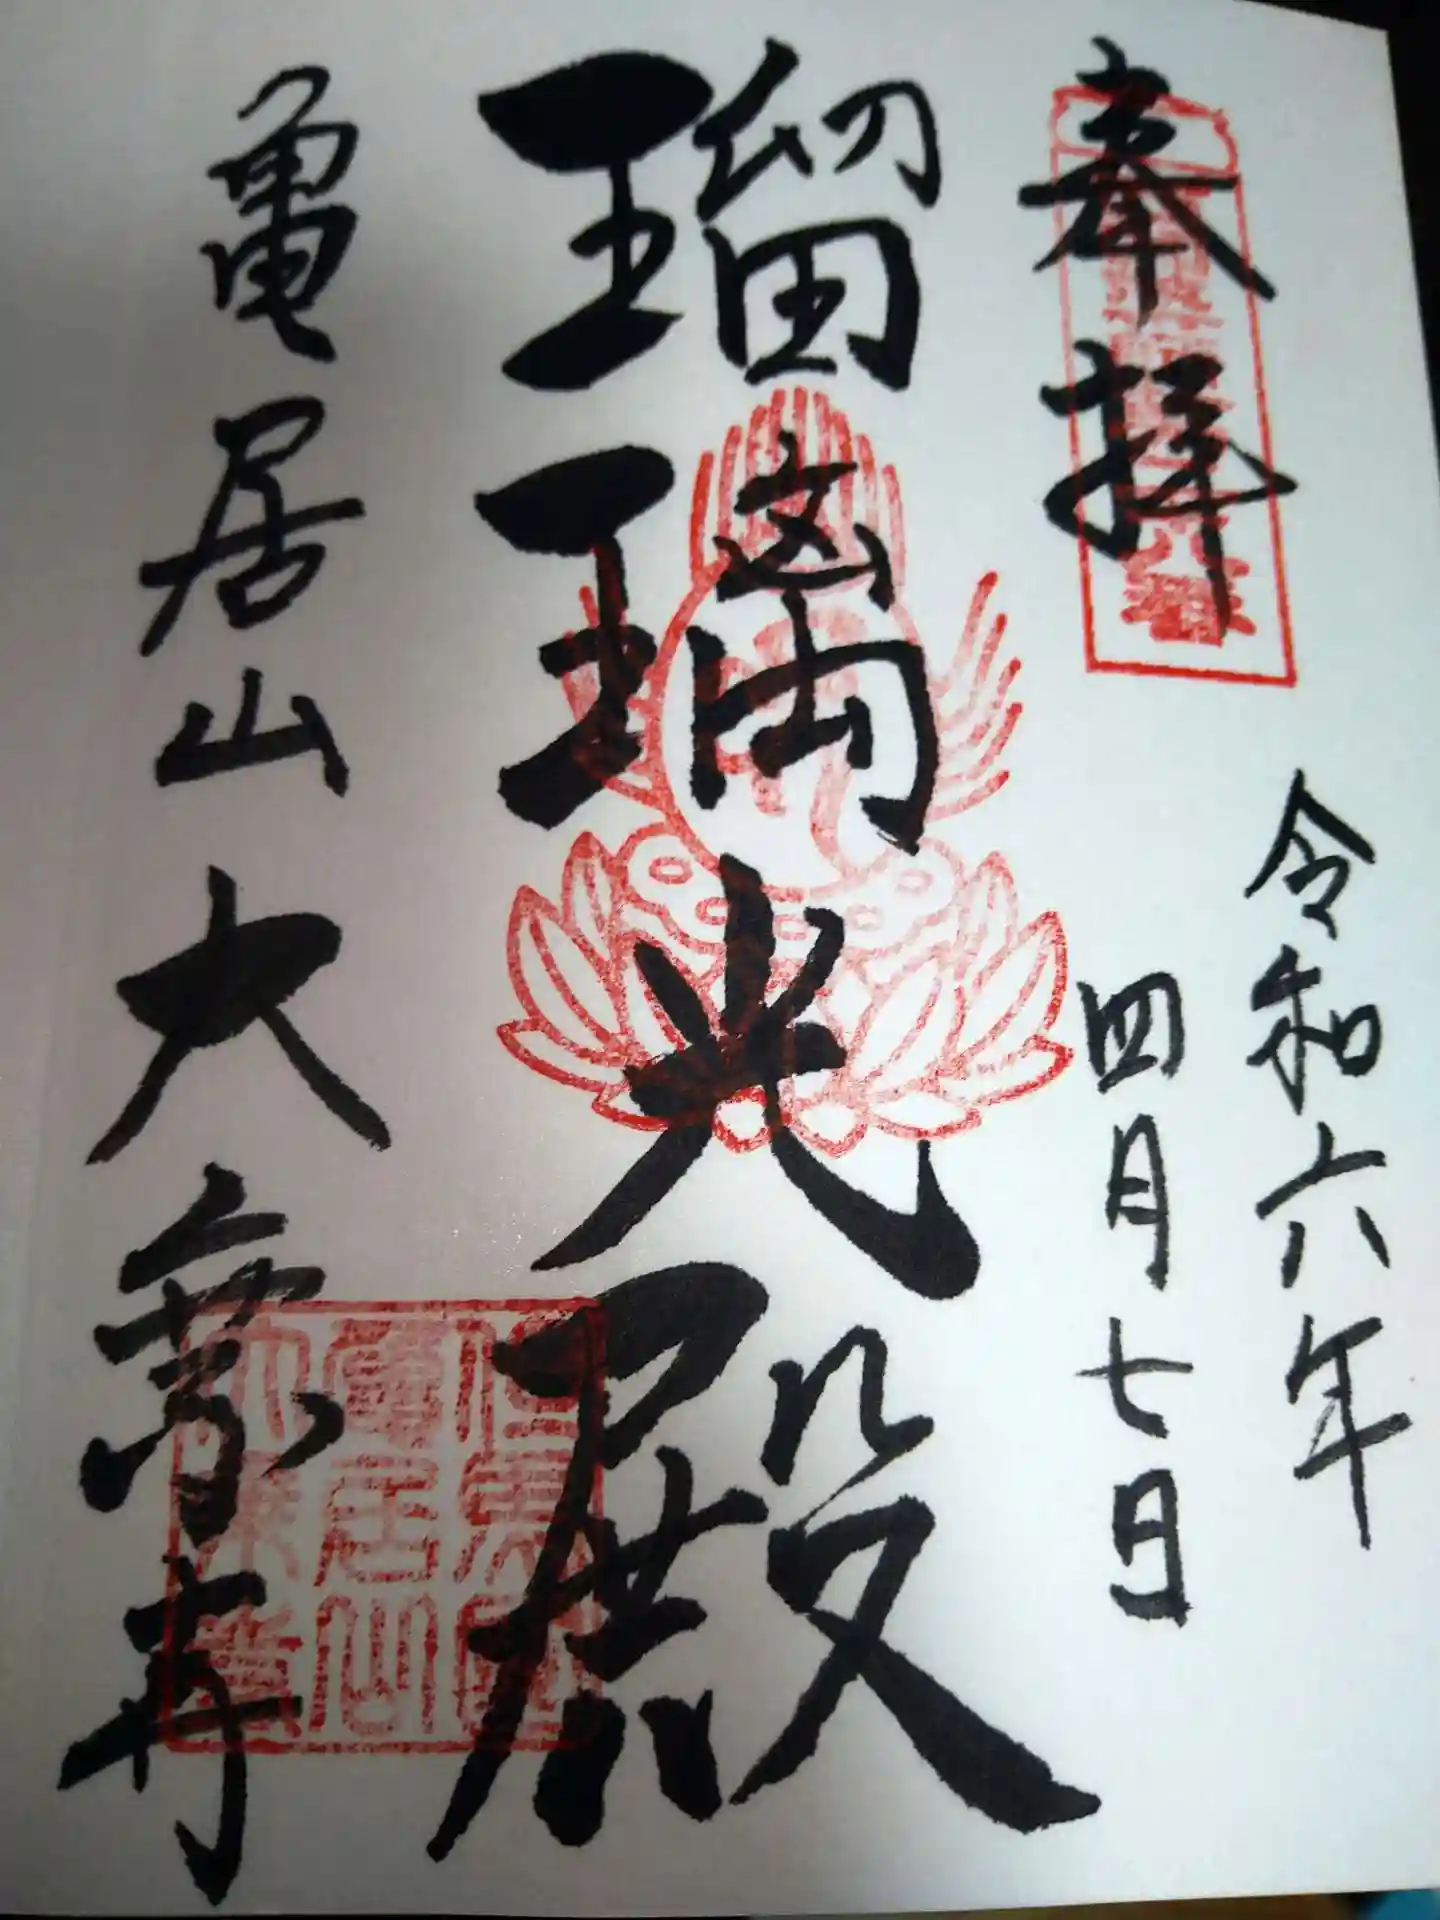 奉拝
令和六年
四月七日
瑠璃光殿
亀居山大乗寺
亀居山